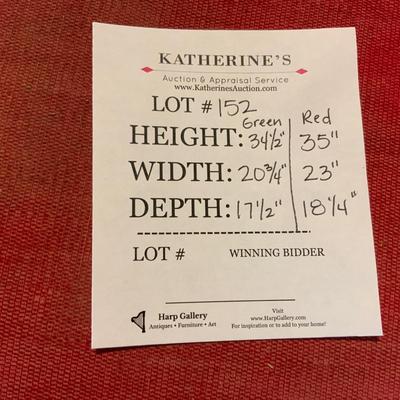 KATHERINE'S
Auction & Appraisal Service
www.KatherinesAuction.com
LOT # 152
Green Red
HEIGHT: 34 1/2" 35"
WIDTH: 20 3/4" 23"
DEPTH: 17 1/2" 18 1/4"
LOT # WINNING BIDDER
Harp Gallery
Antiques • Furniture • Art
Visit
www.HarpGallery.com
For inspiration or to add to your home!